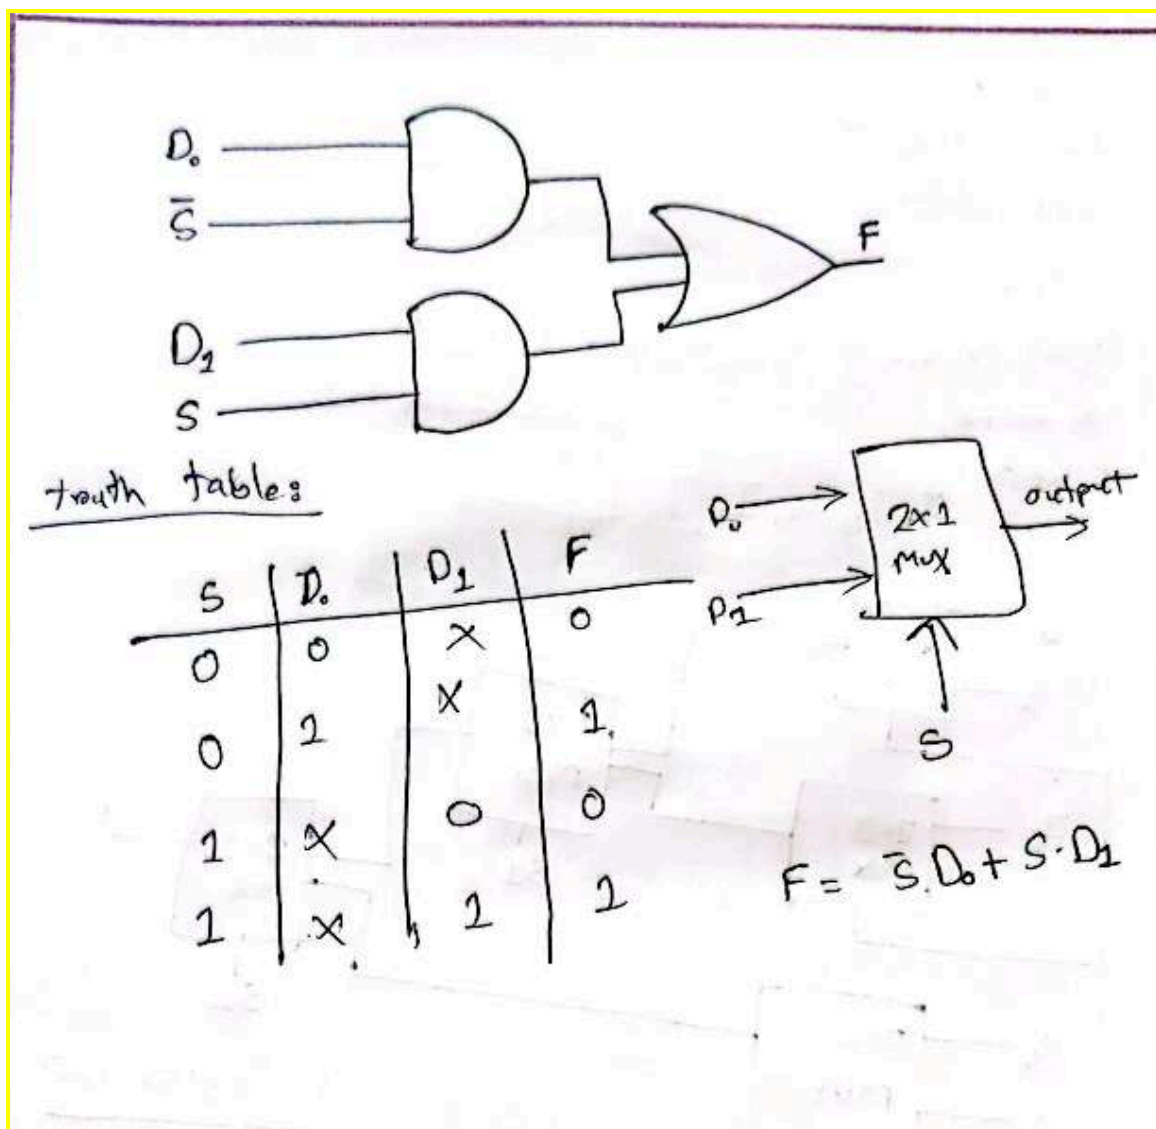 D₀
S̅
F
D₁
S
truth table:
S D₀ D₁ F
0 0 X 0
0 1 X 1
1 X 0 0
1 X 1 1
D₀
2x1
MUX
output
D₁
S
F = S̅.D₀ + S.D₁